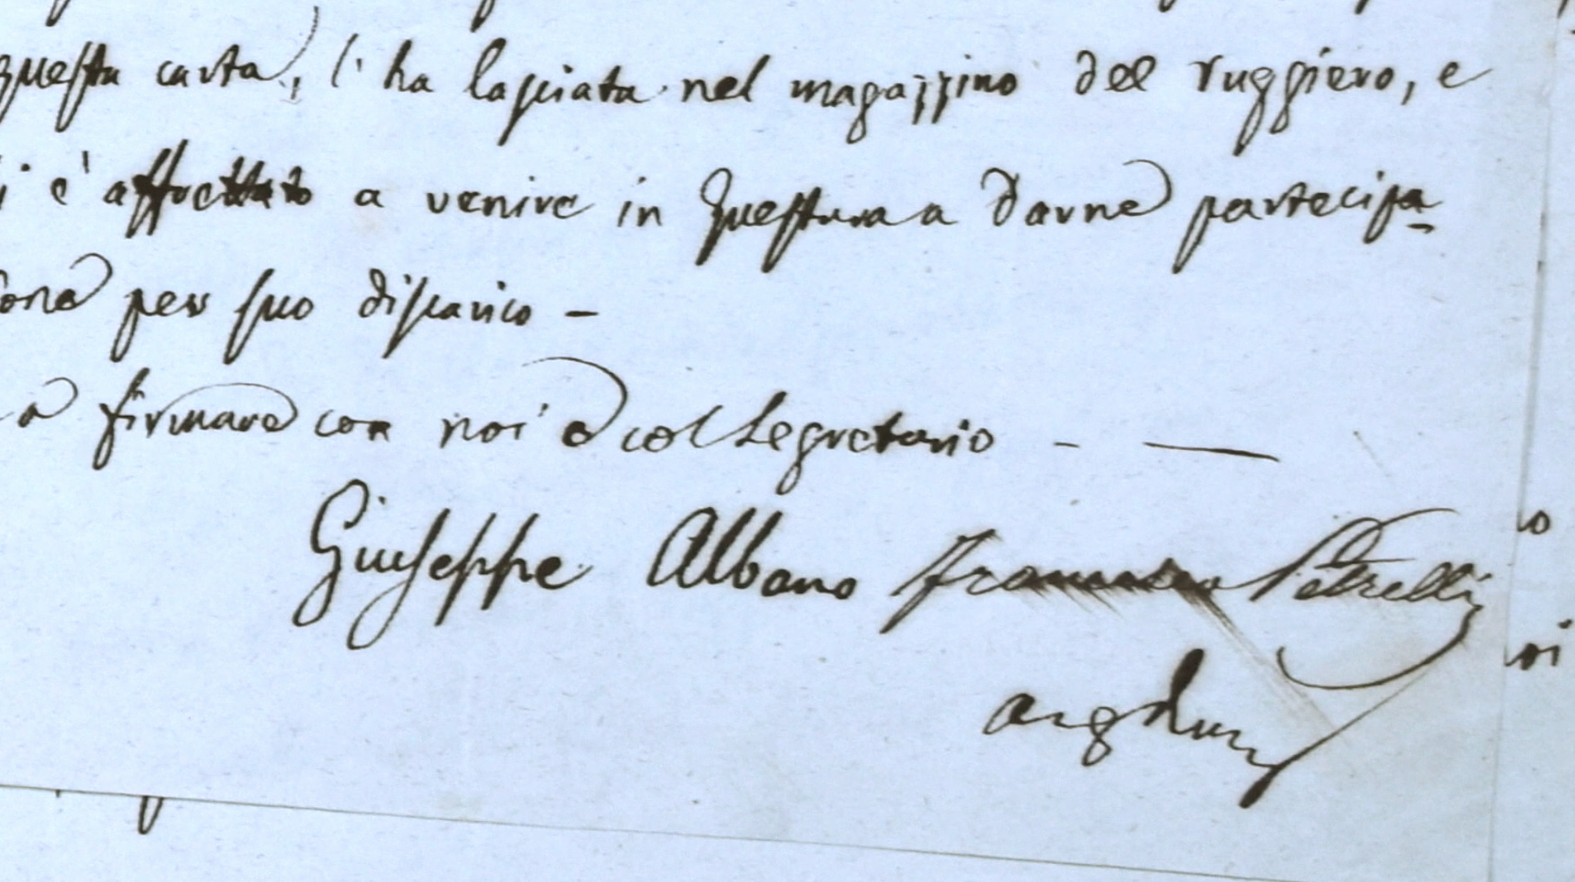 questa carta, l'ha lasciata nel magazzino del Ruggiero, e
è affrettato a venire in Questura a darne partecipa=
per suo discarico —
a firmare con noi e col Segretario — —
Giuseppe Albano Francesco Petrelli